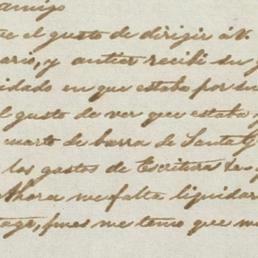 amigo
el gusto de dirigir á V.
ario, y antier recibí su
idado en que estaba por su
l gusto de ver que estaba
cuarto de barra de Santa
los gastos de Escritura
Ahora me falta liquidar
tago, pues me temo que